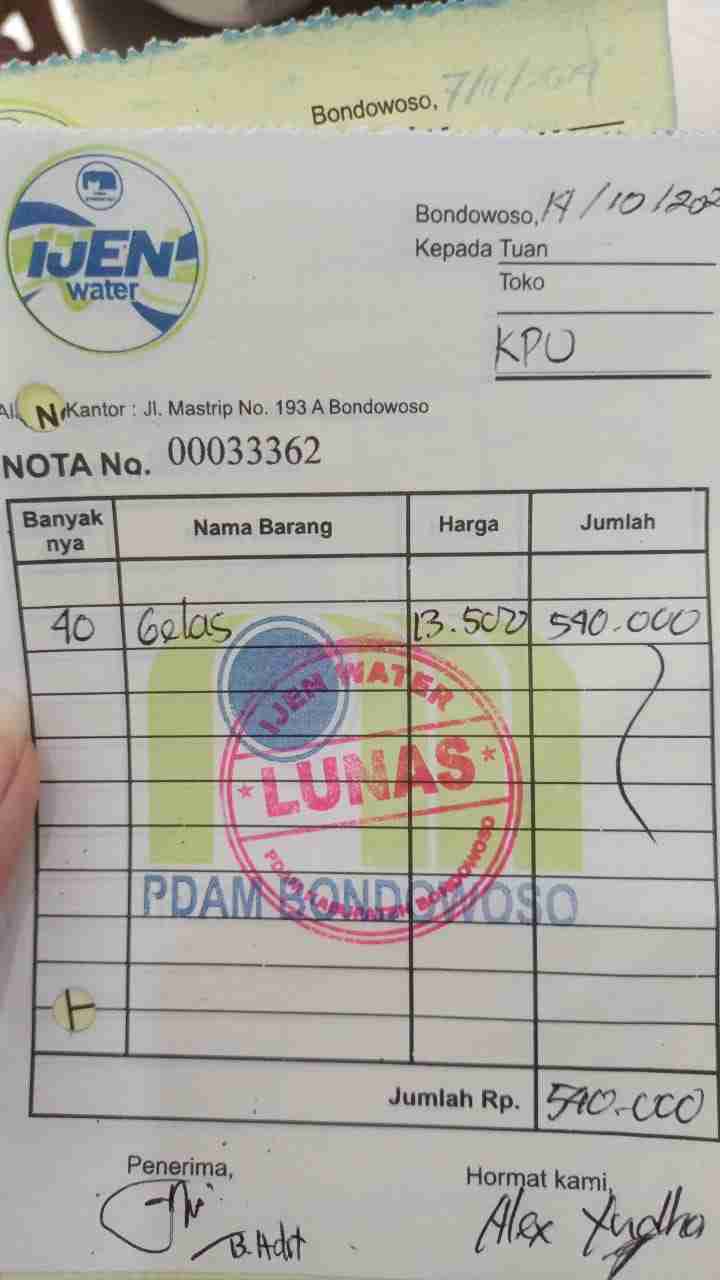 Bondowoso,
IJEN
water
Bondowoso, 14/10/202
Kepada Tuan
Toko
KPU
Kantor : Jl. Mastrip No. 193 A Bondowoso
NOTA No. 00033362
Banyak nya Nama Barang Harga Jumlah
40 Gelas 13.500 540.000
IJEN WATER
LUNAS
PDAM KABUPATEN BONDOWOSO
PDAM BONDOWOSO
Jumlah Rp. 540.000
Penerima, Hormat kami,
B. Adit Alex Yudha